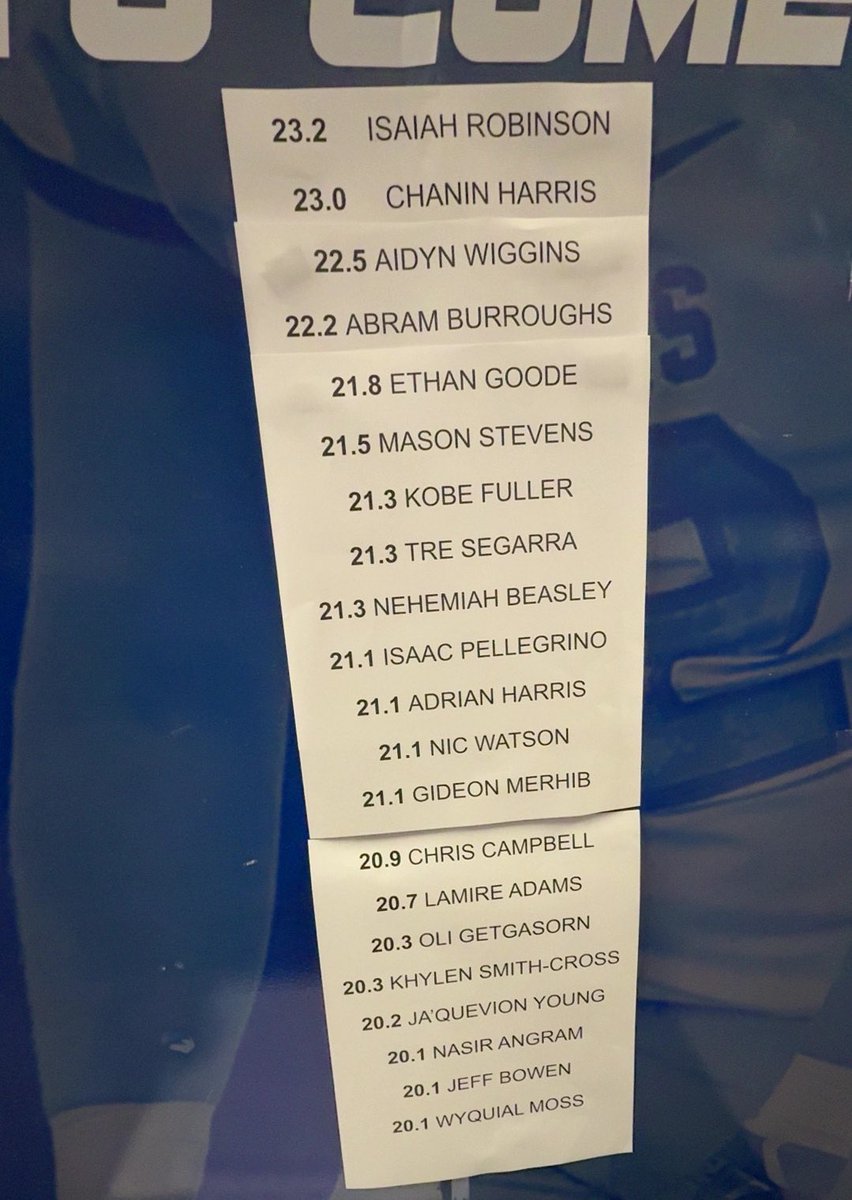 TO COME
23.2 ISAIAH ROBINSON
23.0 CHANIN HARRIS
22.5 AIDYN WIGGINS
22.2 ABRAM BURROUGHS
21.8 ETHAN GOODE
21.5 MASON STEVENS
21.3 KOBE FULLER
21.3 TRE SEGARRA
21.3 NEHEMIAH BEASLEY
21.1 ISAAC PELLEGRINO
21.1 ADRIAN HARRIS
21.1 NIC WATSON
21.1 GIDEON MERHIB
20.9 CHRIS CAMPBELL
20.7 LAMIRE ADAMS
20.3 OLI GETGASORN
20.3 KHYLEN SMITH-CROSS
20.2 JA'QUEVION YOUNG
20.1 NASIR ANGRAM
20.1 JEFF BOWEN
20.1 WYQUIAL MOSS